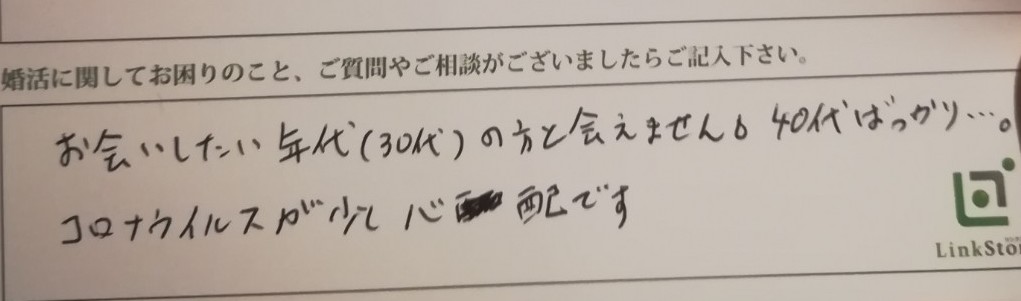 婚活に関してお困りのこと、ご質問やご相談がございましたらご記入下さい。
お会いしたい年代(30代)の方と会えません。40代ばっかり…。
コロナウイルスが少し心配です